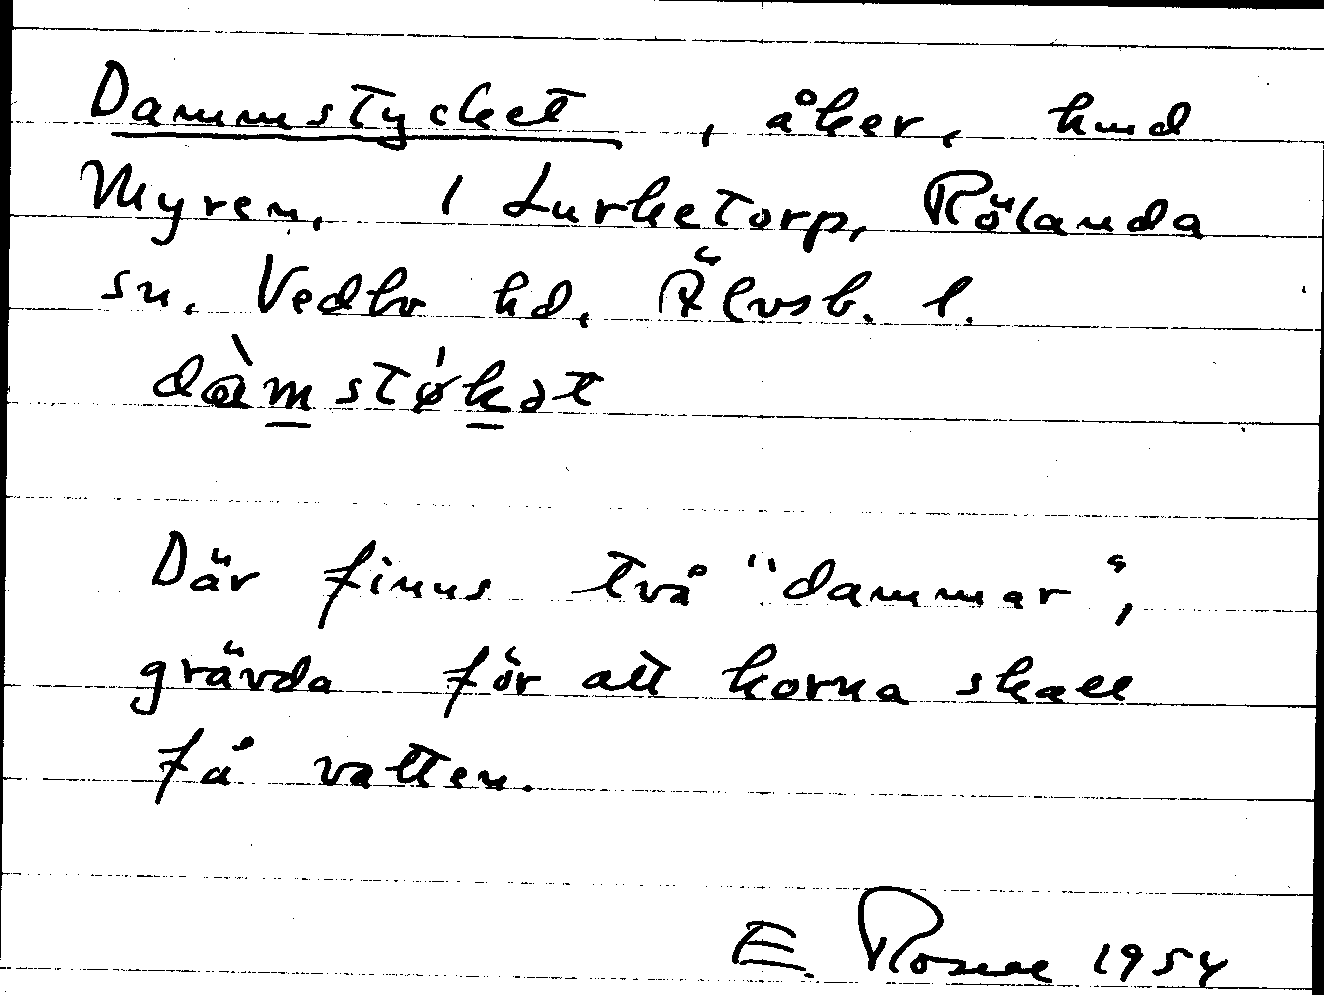 Dammstycket, åker, hmd
Myren, 1 Lurketorp, Rölanda
sn. Vedbo hd, Älvsb. l.
dàmstø̍kət
Där finns två "dammar",
grävda för att korna skall
få vatten.
E. 1954